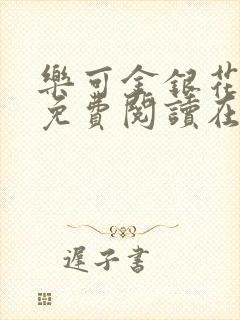 樂可金銀花
免費閱讀在
遲子書